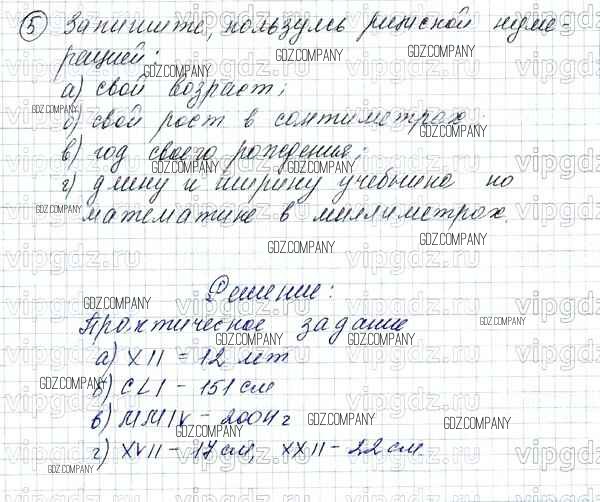 5 Запишите, пользуясь римской нуме-
рацией:
а) свой возраст;
б) свой рост в сантиметрах
в) год своего рождения;
г) длину и ширину учебника по
математике в миллиметрах.
Решение:
Практическое задание
а) XII = 12 лет
б) CLI - 151 см
в) MMIV - 2004 г
г) XVII - 17 см, XXII - 22 см.